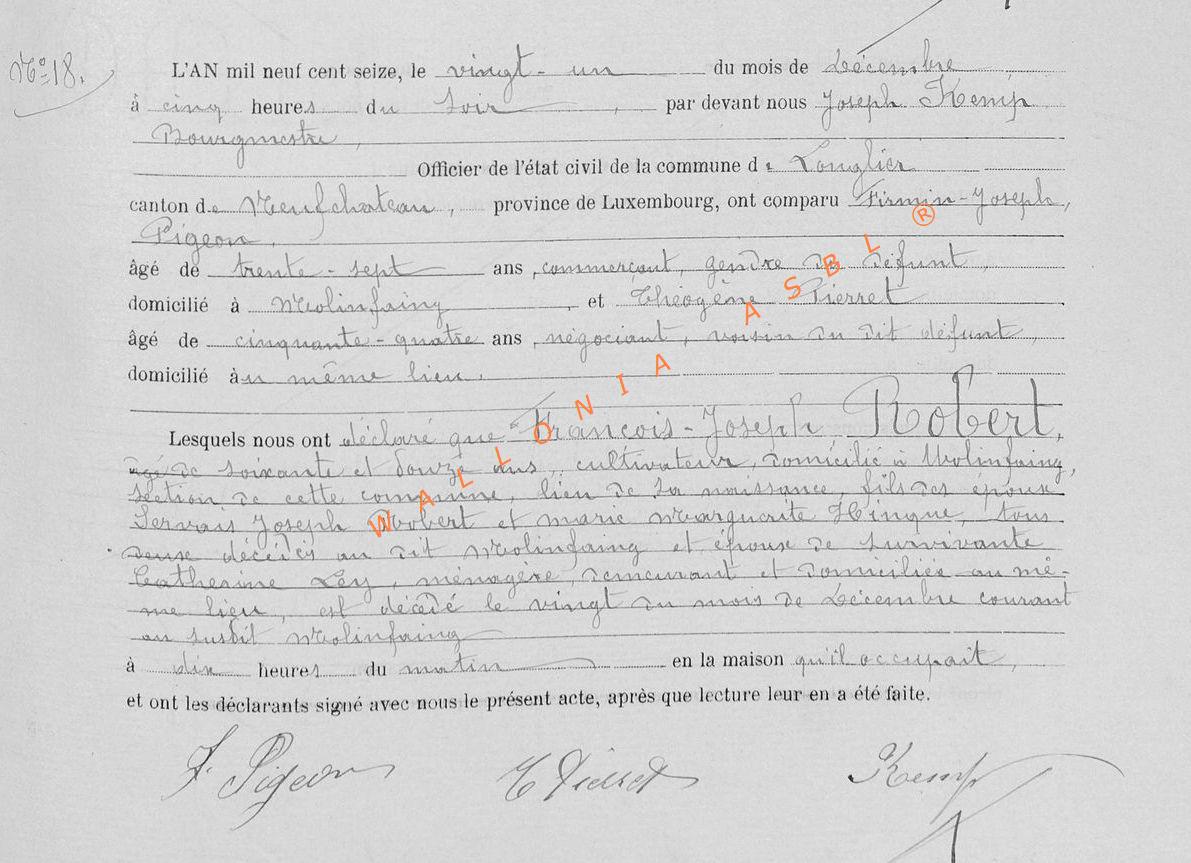 No 18.
L'AN mil neuf cent seize, le vingt-un du mois de Décembre
à cinq heures du soir, par devant nous Joseph Kemp
Bourgmestre,
Officier de l'état civil de la commune de Longlier
canton de Neufchateau, province de Luxembourg, ont comparu Firmin-Joseph,
Pigeon,
âgé de trente-sept ans, commerçant, gendre du défunt,
domicilié à Molinfaing, et Théogène Pierret
âgé de cinquante-quatre ans, négociant, voisin du dit défunt,
domicilié au même lieu.
Lesquels nous ont déclaré que François-Joseph Robert,
âgé de soixante et douze ans, cultivateur, domicilié à Molinfaing,
section de cette commune, lieu de sa naissance, fils des époux
Servais Joseph Robert et Marie Marguerite Hinque, tous
deux décédés au dit Molinfaing et époux de survivante
Catherine Ley, ménagère, demeurant et domiciliée au mê-
me lieu, est décédé le vingt du mois de Décembre courant
au susdit Molinfaing
à dix heures du matin en la maison qu'il occupait,
et ont les déclarants signé avec nous le présent acte, après que lecture leur en a été faite.
F. Pigeon T Pierret Kemp
WALLONIA ASBL ®